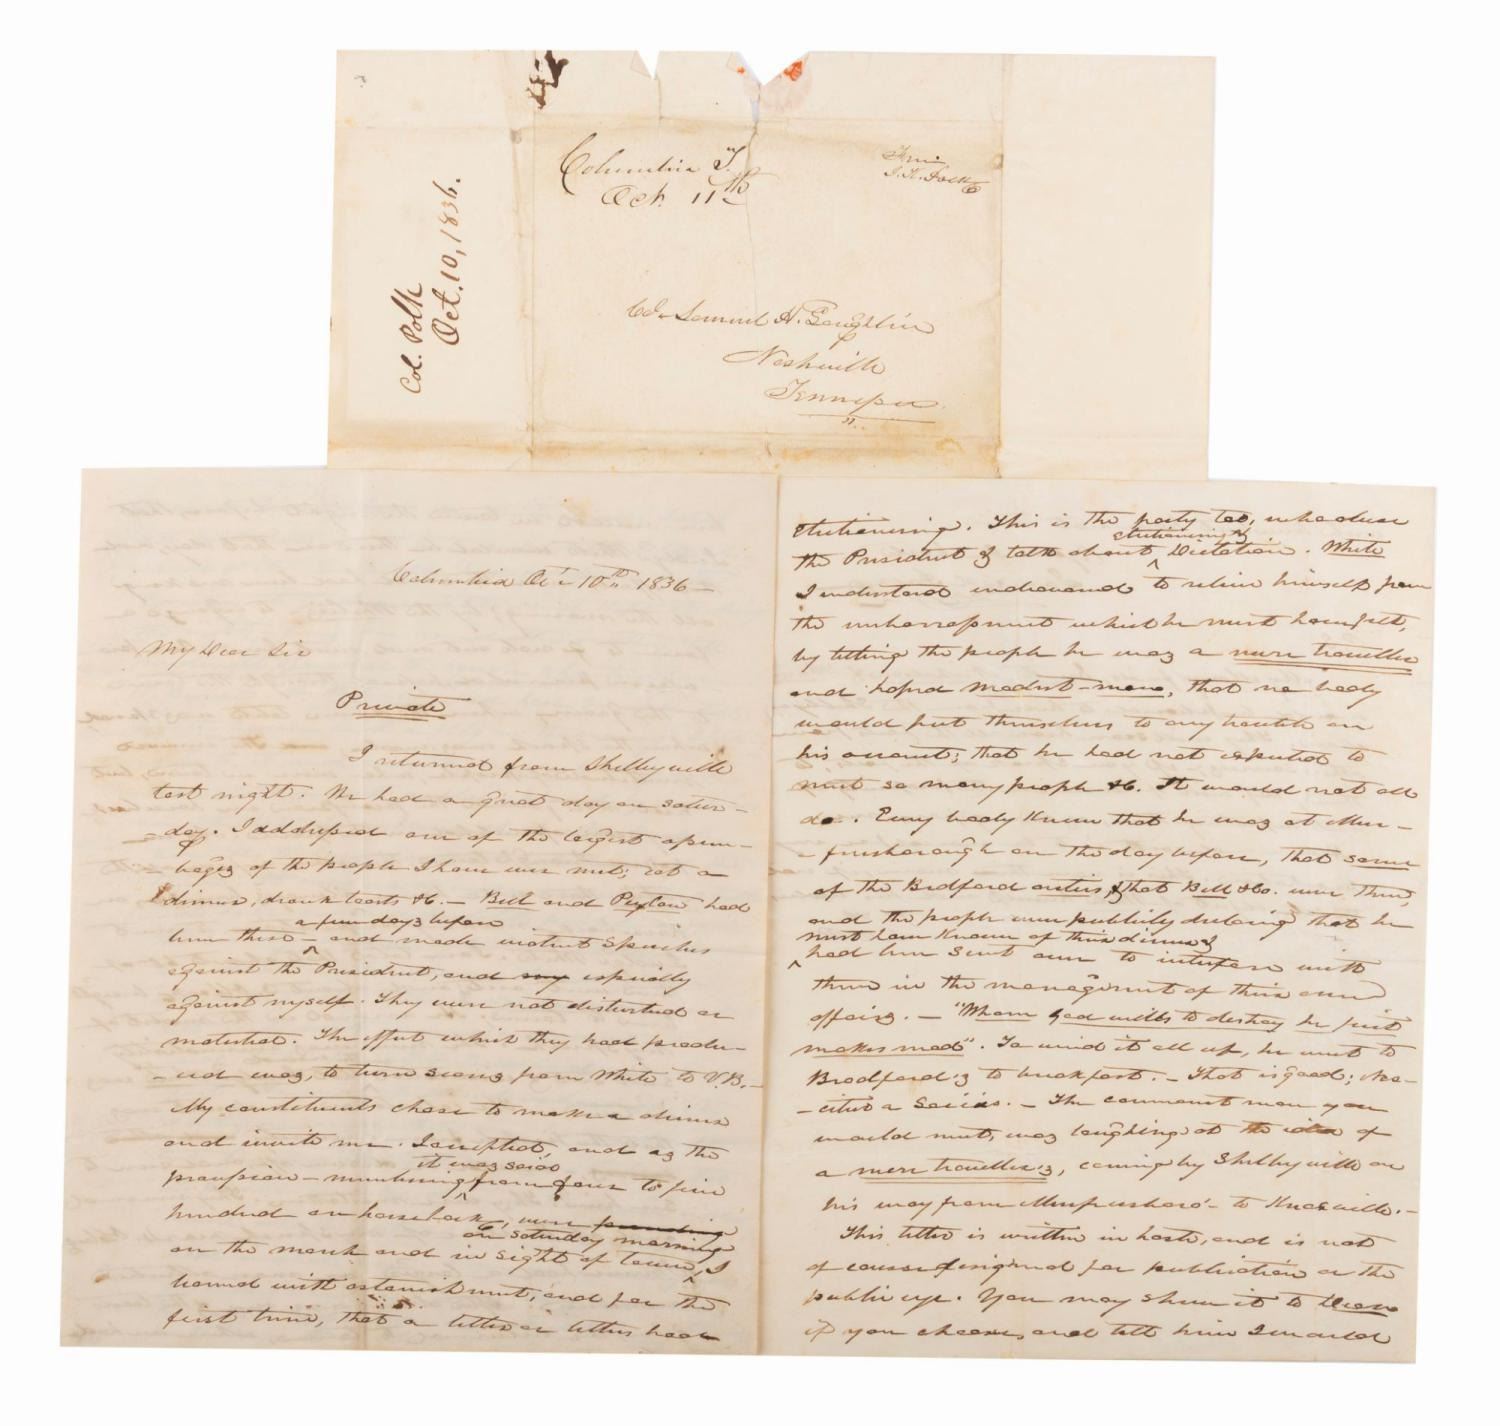 Col. Polk
Oct. 10, 1836.
Columbia T.
Oct. 11th
From
J. K. Polk
Col. Samuel H. Laughlin
Nashville
Tennessee
Columbia Oct. 10th 1836
My Dear Sir
Private
I returned from Shelbyville
last night. We had a great day on Satur-
-day. I addressed one of the largest assem-
-bages of the people I have ever met; eat a
dinner, drank toasts &c. - Bell and Peyton had
a few days before
been there - and made violent speeches
against the ^ President, and my especially
against myself. They were not disturbed or
molested. The effect which they had produ-
-ced was, to turn scores from White to V.B. -
My constituents chose to make a dinner
and invite me. I accepted, and as the
it was said
procession - numbering ^ from four to five
hundred on horseback, were
on Saturday morning
on the march and in sight of town, ^ I
learned with astonishment, and for the
first time, that a letter or letters had
electioneering. This is the party too, who abuse
electioneering &
the President & talk about ^ Dictation. White
I understand endeavoured to relieve himself from
the embarrassment which he must have felt,
by telling the people he was a mere traveller
and hoped modest-man, that no body
would put themselves to any trouble on
his account; that he had not expected to
meet so many people &c. It would not all
do. Every body knew that he was at Mur-
-freesborough on the day before, that some
of the Bedford Whigs & that Bell & Co. were there,
and the people were publicly declaring that he
must have known of this dinner &
^ had been sent over to interfere with
them in the management of their own
affairs. - "Whom God wills to destroy he first
makes mad". To wind it all up, he went to
Bradford's to breakfast. - That is good;
The commonest man you
would meet, was laughing at the idea of
a mere traveller's, coming by Shelbyville on
his way from Murfreesboro' to Knoxville. -
This letter is written in haste, and is not
of course designed for publication or the
public eye. You may show it to
if you choose, and tell him I would